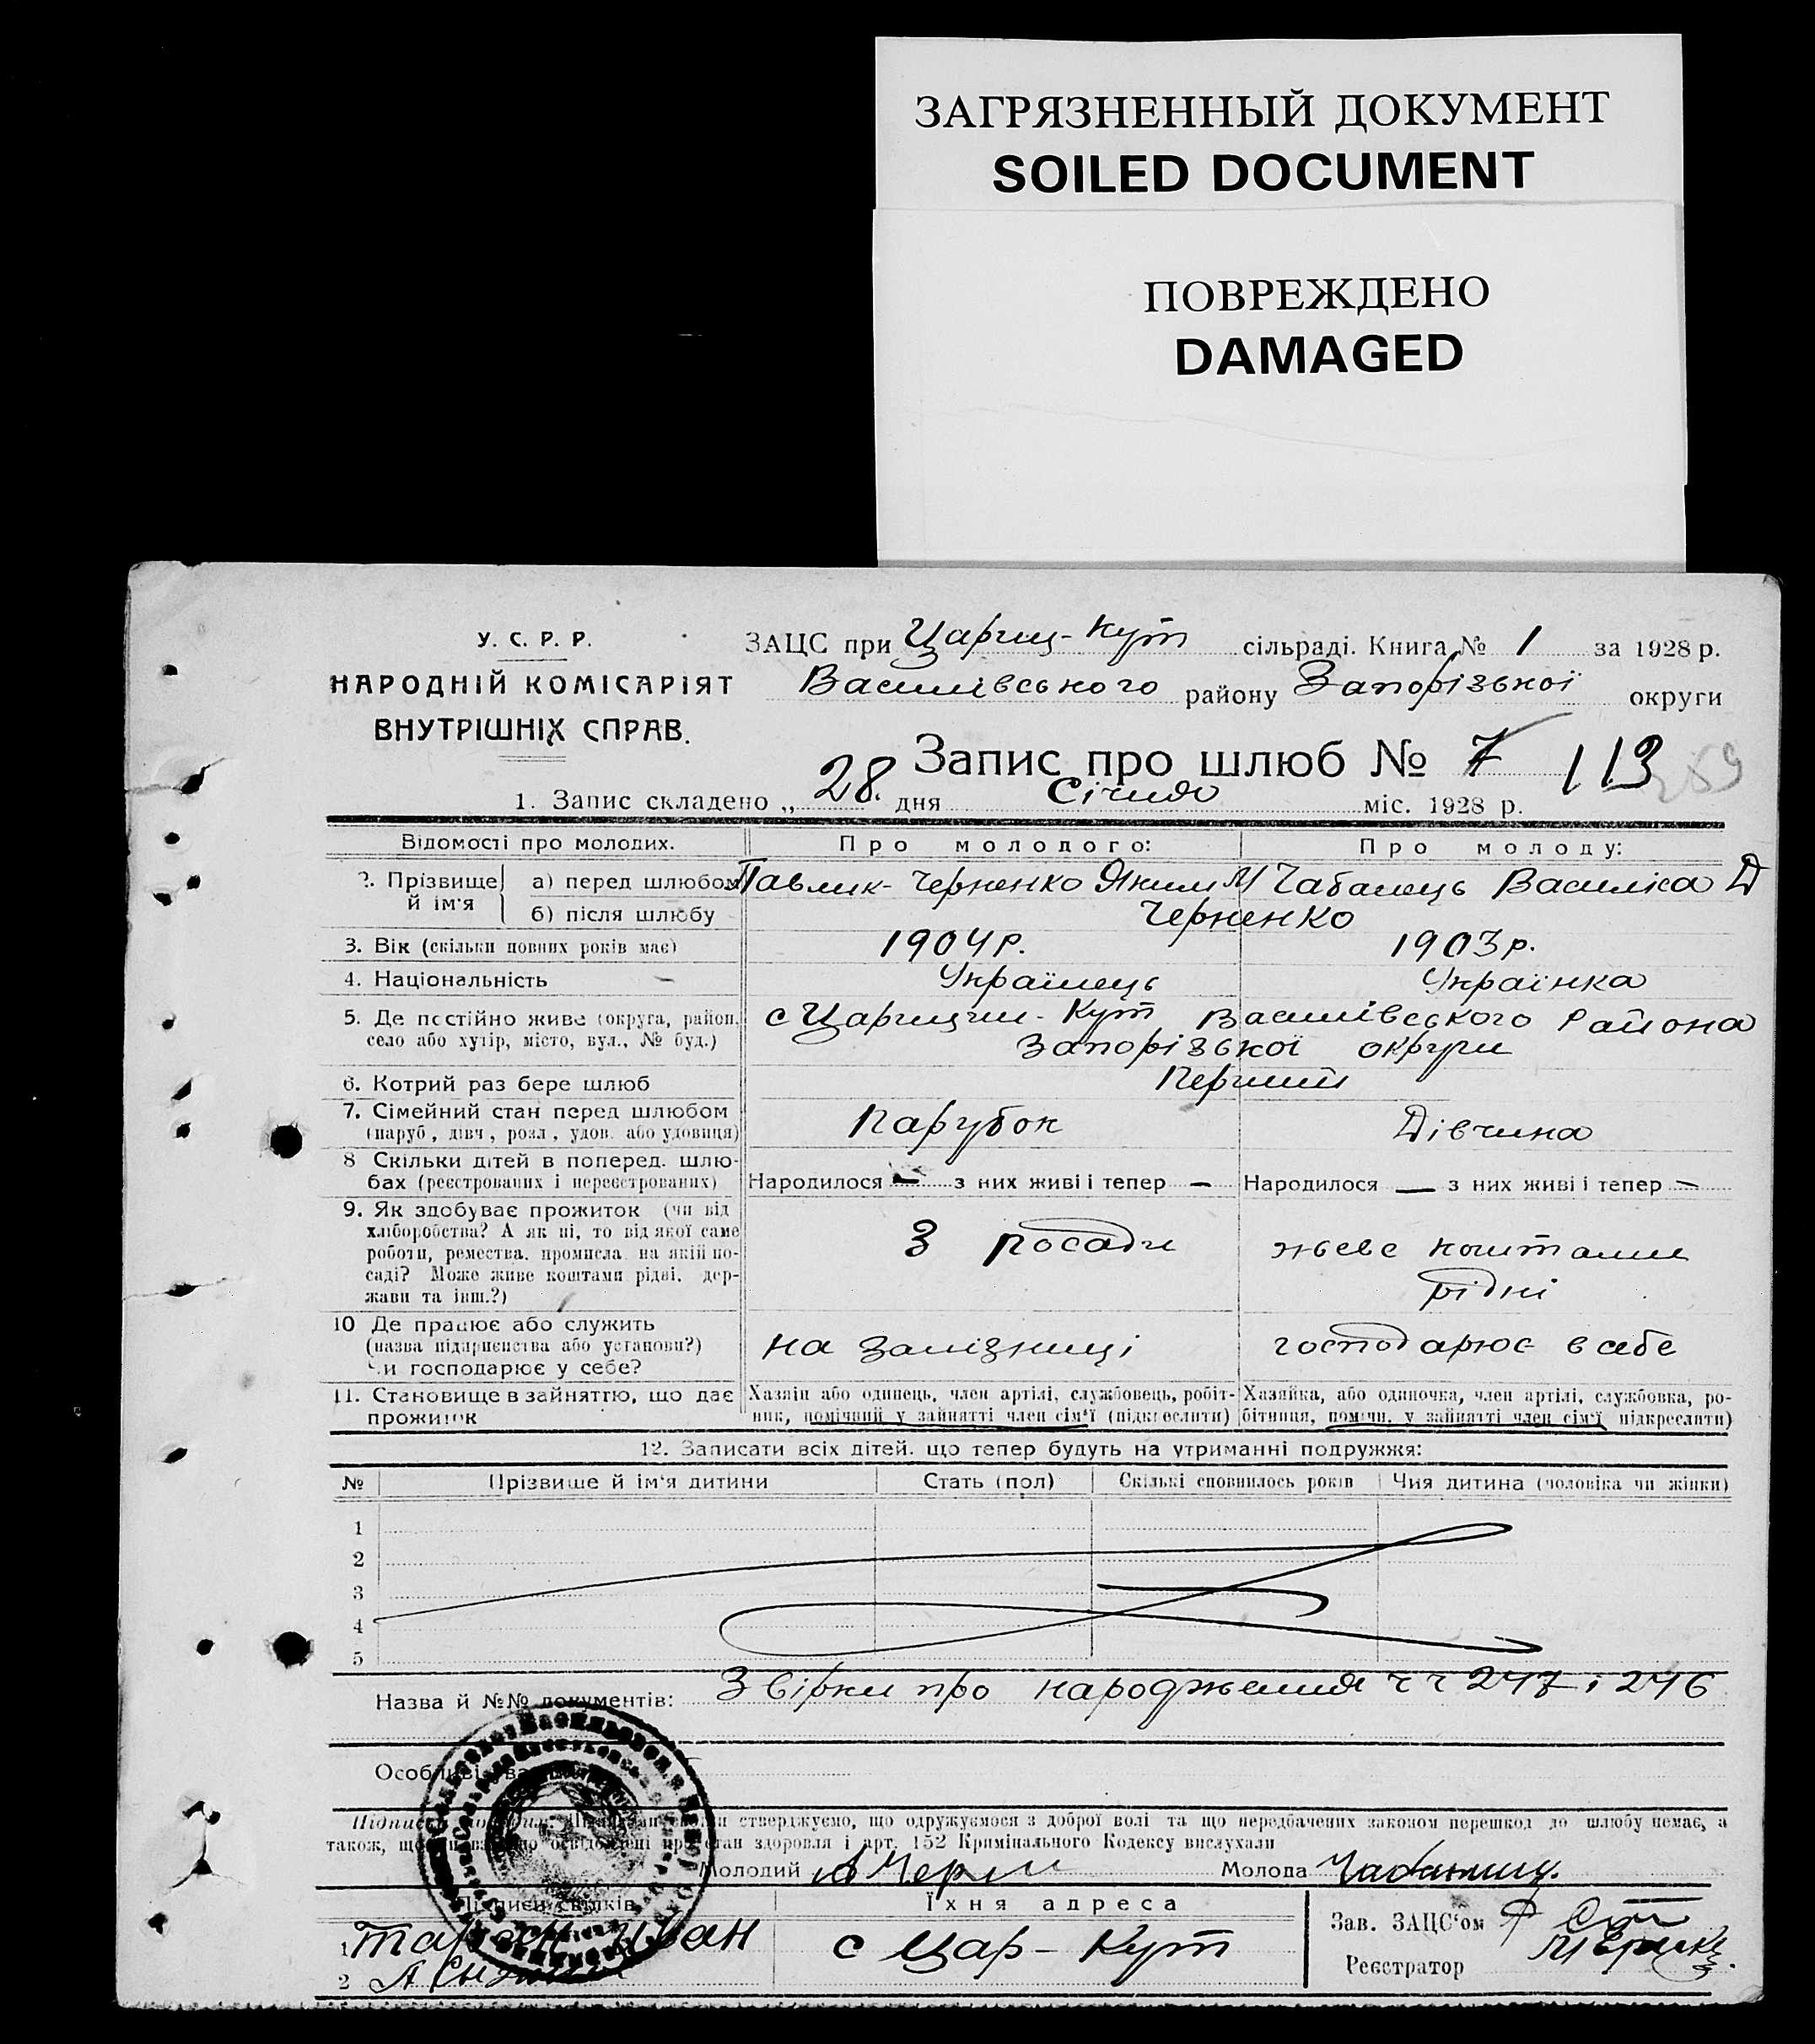 ЗАГРЯЗНЕННЫЙ ДОКУМЕНТ
SOILED DOCUMENT
ПОВРЕЖДЕНО
DAMAGED
У. С. Р. Р.
НАРОДНІЙ КОМІСАРІЯТ
ВНУТРІШНІХ СПРАВ.
ЗАЦС при Цариц-Кут сільраді. Книга № 1 за 1928 р.
Василівського району Запорізької округи
Запис про шлюб № 7 113
1. Запис складено „ 28. дня Січня міс. 1928 р.
Відомості про молодих. Про молодого: Про молоду:
2. Прізвище й ім'я а) перед шлюбом Павлик-Черненко Яким М Чабанець Василіса Д
б) після шлюбу Черненко
3. Вік (скільки повних років має) 1904 р. 1903 р.
4. Національність Українець Українка
5. Де постійно живе (округа, район, с Царицин-Кут Василівського Района
село або хутір, місто, вул., № буд.) Запорізької округи
6. Котрий раз бере шлюб Перший
7. Сімейний стан перед шлюбом Парубок Дівчина
(паруб., дівч., розл., удов. або удовиця)
8 Скільки дітей в поперед. шлю-
бах (реєстрованих і нереєстрованих) Народилося — з них живі і тепер — Народилося — з них живі і тепер —
9. Як здобуває прожиток (чи від
хліборобства? А як ні, то від якої саме
роботи, ремества, промисла, на якій по- З посади живе коштами
саді? Може живе коштами рідні, дер- рідні
жави та інш.?)
10 Де працює або служить
(назва підприємства або установи?) на залізниці господарює в себе
Чи господарює у себе?
11. Становище в зайняттю, що дає Хазяїн або одинець, член артілі, службовець, робіт- Хазяйка, або одиночка, член артілі, службовка, ро-
прожиток ник, помічний у зайнятті член сім'ї (підкреслити) бітниця, помічн. у зайнятті член сім'ї підкреслити)
12. Записати всіх дітей, що тепер будуть на утриманні подружжя:
№ Прізвише й ім'я дитини Стать (пол) Скількі сповнилось років Чия дитина (чоловіка чи жінки)
1
2
3
4
5
Назва й №№ документів: Звірки про народження ч ч 247 і 246
Особливі
стверджуємо, що одружуємося з доброї волі та що передбачених законом перешкод до шлюбу немає, а
також, що стан здоровля і арт. 152 Кримінального Кодексу вислухали
Молодий Черн Молода Чабанец.
Підписи свідків Їхня адреса
1 Таран Иван с Цар-Кут Зав. ЗАЦС'ом
2 Реєстратор